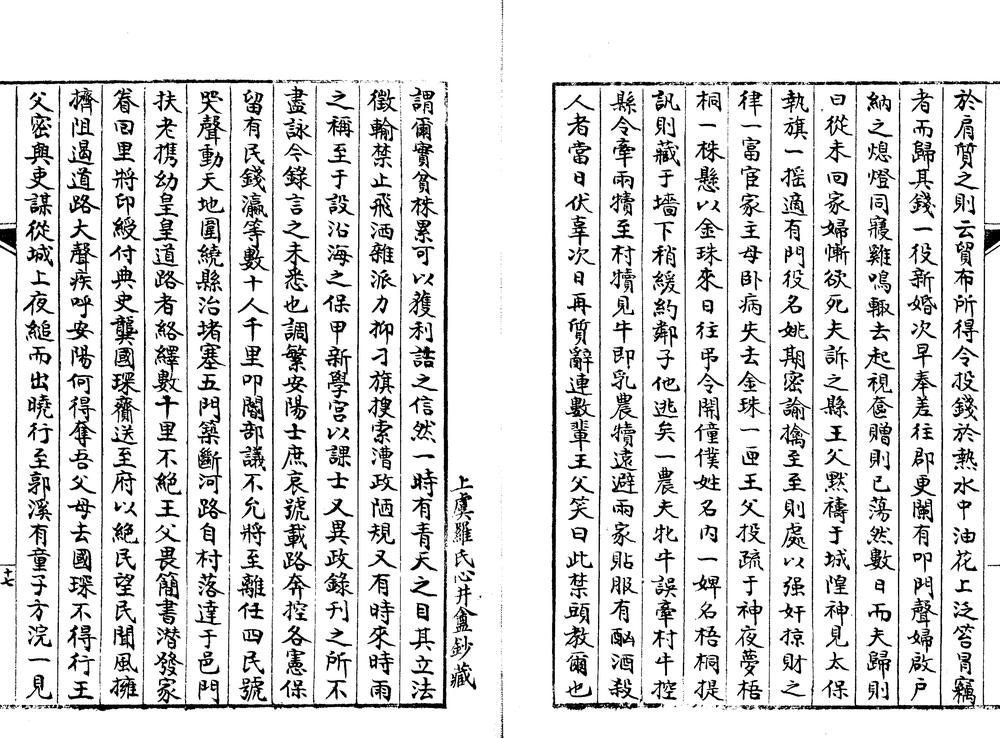 於肩質之則云貿布所得令投錢於熱水中油花上泛笞冐竊
者而歸其錢一役新婚次早奉差往郡更闌有叩門聲婦啟戶
納之熄燈同寢雞鳴輒去起視奩贈則已蕩然數日而夫歸則
曰從未回家婦慚欲死夫訴之縣王父黙禱于城隍神見太保
執旗一摇適有門役名姚期密諭擒至至則處以强奸掠財之
律一富宦家主母卧病失去金珠一匣王父投疏于神夜夢梧
桐一株懸以金珠來日往弔令開僮僕姓名内一婢名梧桐提
訊則藏于墻下稍緩約鄰子他逃矣一農夫牝牛誤牽村牛控
縣令牽兩犢至村犢見牛即乳農犢遠避兩家貼服有酗酒殺
人者當日伏辜次日再質辭連數輩王父笑曰此禁頭教爾也
謂爾實貧株累可以獲利詰之信然一時有青天之目其立法
徵輸禁止飛洒雜派力抑刁旗搜索漕政陋規又有時來時雨
之稱至于設沿海之保甲新學宮以課士又異政錄刊之所不
盡詠今錄言之未悉也調繁安陽士庶哀號載路奔控各憲保
留有民錢瀛等數十人千里叩閽部議不允將至離任四民號
哭聲動天地圍繞縣治堵塞五門築斷河路自村落達于邑門
扶老携幼皇皇道路者絡繹數十里不絕王父畏簡書潛發家
眷回里將印綬付典史龔國琛齎送至府以絶民望民聞風擁
擠阻遏道路大聲疾呼安陽何得奪吾父母去國琛不得行王
父密與吏謀從城上夜縋而出曉行至郭溪有童子方浣一見
上虞羅氏心井盦鈔藏
十七